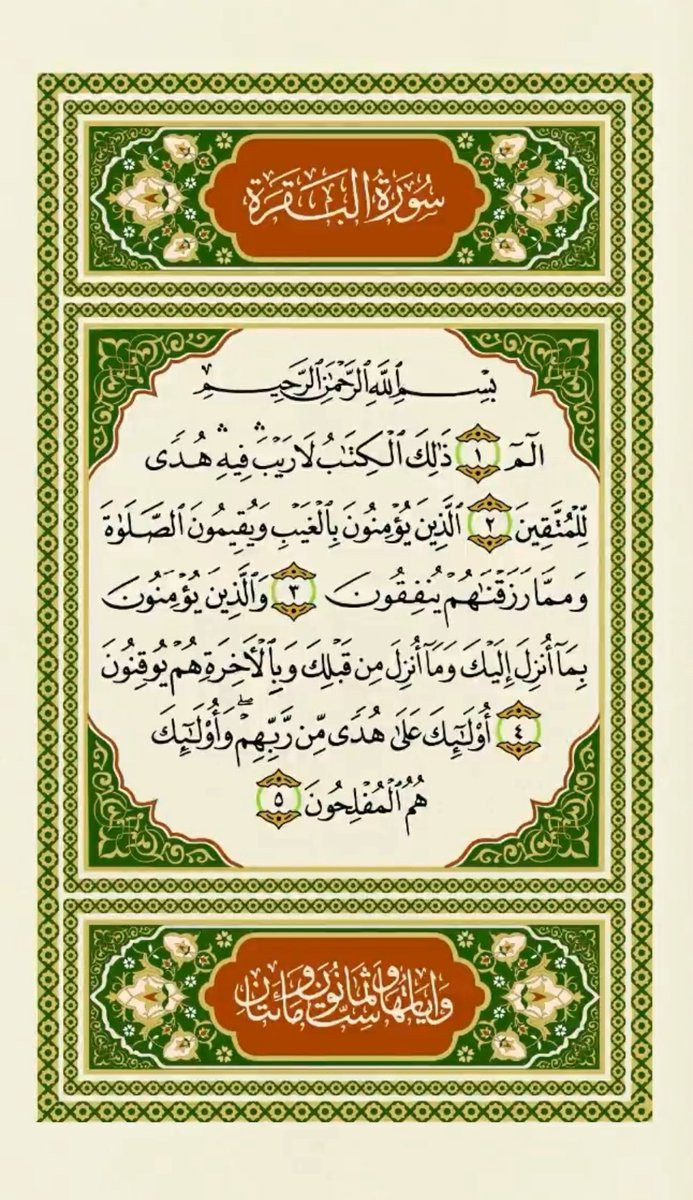 سُورَةُ الْبَقَرَةِ
بِسْمِ ٱللَّهِ ٱلرَّحْمَٰنِ ٱلرَّحِيمِ
الٓمٓ ١ ذَٰلِكَ ٱلْكِتَٰبُ لَا رَيْبَ ۛ فِيهِ ۛ هُدًى
لِّلْمُتَّقِينَ ٢ ٱلَّذِينَ يُؤْمِنُونَ بِٱلْغَيْبِ وَيُقِيمُونَ ٱلصَّلَوٰةَ
وَمِمَّا رَزَقْنَٰهُمْ يُنفِقُونَ ٣ وَٱلَّذِينَ يُؤْمِنُونَ
بِمَآ أُنزِلَ إِلَيْكَ وَمَآ أُنزِلَ مِن قَبْلِكَ وَبِٱلْأَخِرَةِ هُمْ يُوقِنُونَ
٤ أُوْلَٰٓئِكَ عَلَىٰ هُدًى مِّن رَّبِّهِمْ ۖ وَأُوْلَٰٓئِكَ
هُمُ ٱلْمُفْلِحُونَ ٥
وَاٰيَاتُهَا سِتٌّ وَثَمَانُونَ وَمِائَتَانِ